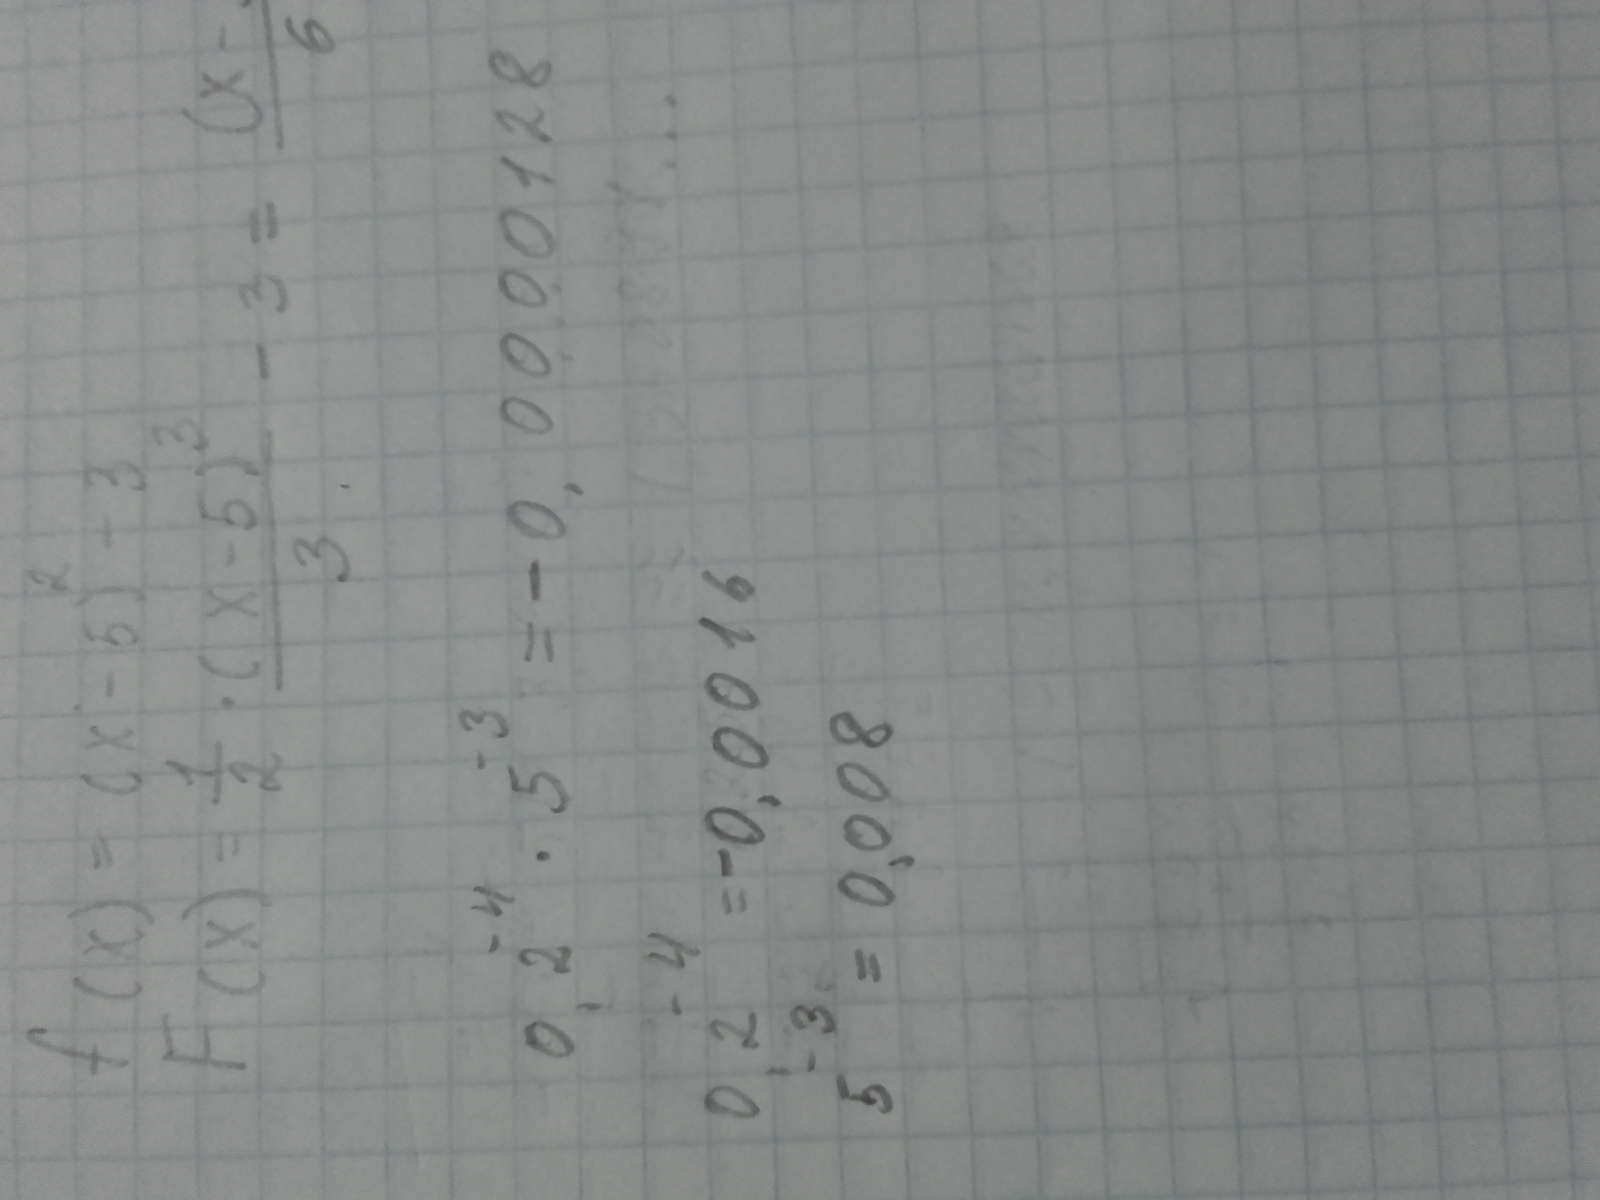 f(x) = (x - 5)² - 3
F(x) = 1/2 · (x - 5)³/3 - 3 = (x-/6
0,2⁻⁴ · 5⁻³ = - 0,0000 0128
0,2⁻⁴ = -0,0016
5⁻³ = 0,008